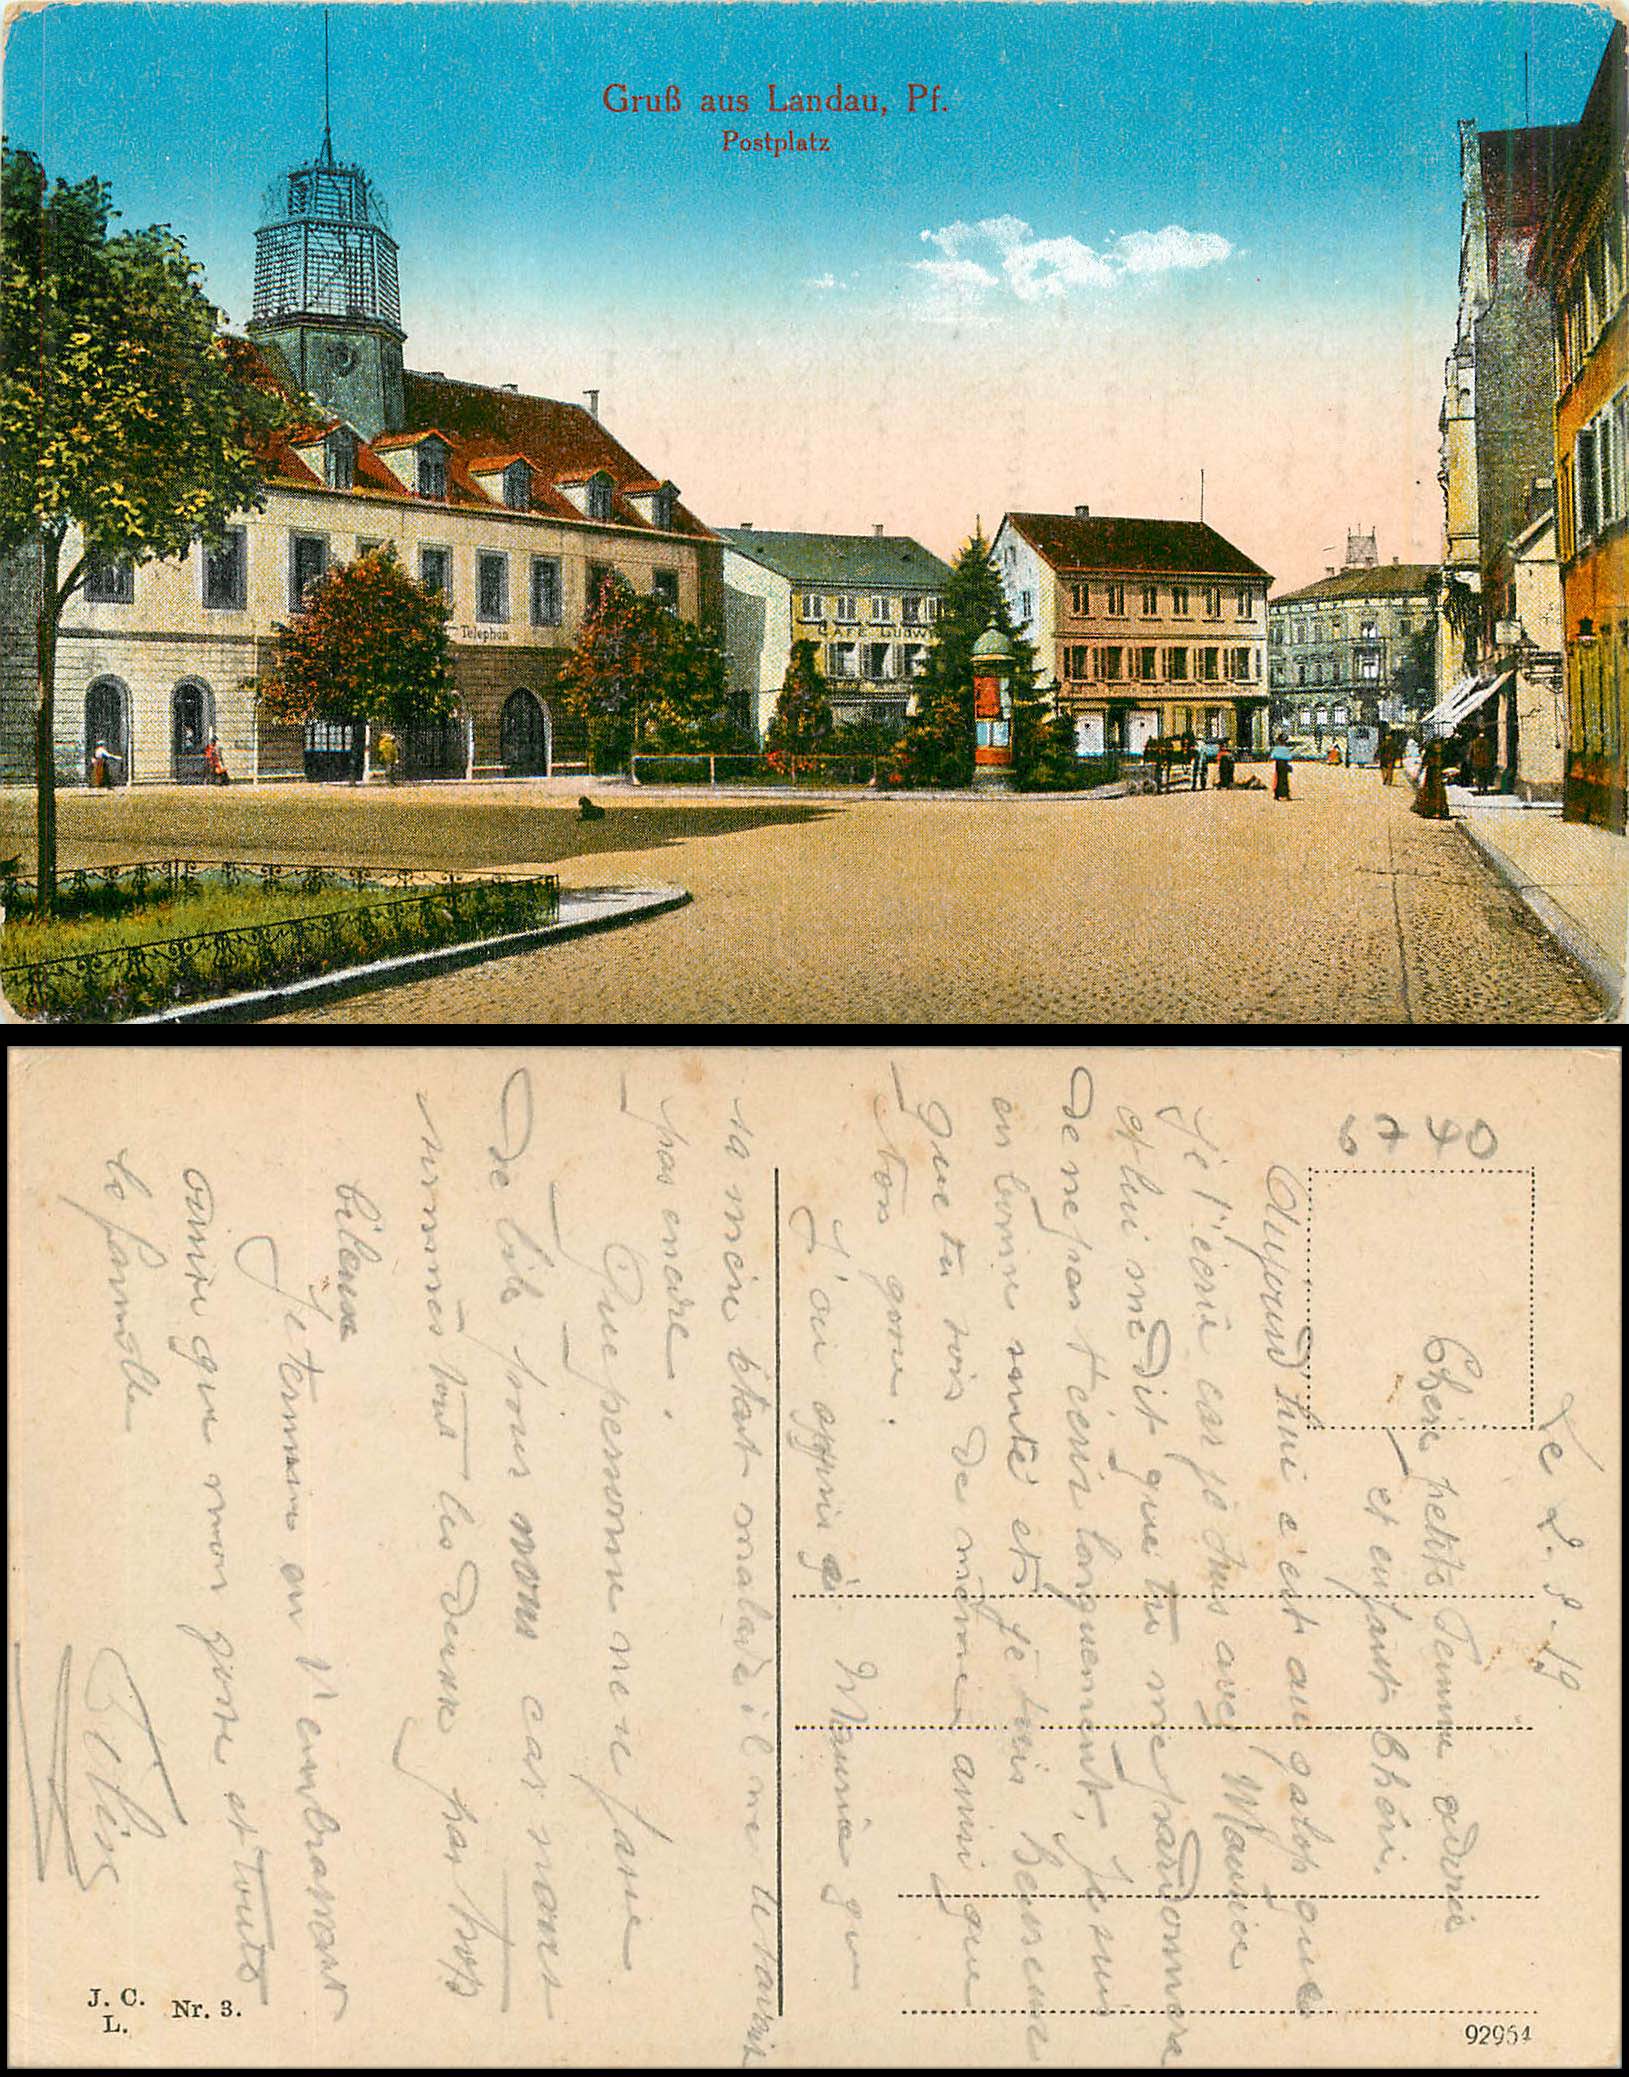 Gruß aus Landau, Pf.
Postplatz
Telephon
CAFÉ LUDW
6740
Le 2.8.19.
Chère petite Femme chérie
et enfant chéri.
Aujourd'hui c'est au galop que
je t'écris car je suis avec Maurice
et lui me dit que tu me pardonnera
de ne pas t'écrire longuement, je suis
en bonne santé et je suis heureux
que tu sois de même ainsi que
ton gosse.
J'ai appris à Maurice que
sa mère était malade il ne le savait
pas encore.
Que personne ne se fasse
de bile pour nous car nous
sommes tout les deux pas trop
bileux
Je termine en t'embrassant
ainsi que mon gosse et toute
la famille
J. C.
L.
Nr. 3.
92964